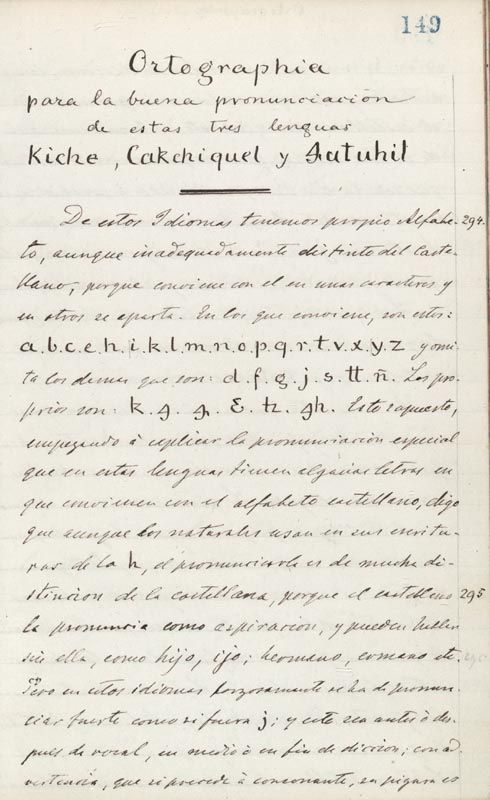 149
Ortographia
para la buena pronunciación
de estas tres lenguas
Kiche, Cakchiquel y 4atuhil
De estos Idiomas tenemos propio Alfabe- 294.
to, aunque inadequedamente distinto del Caste-
llano, porque conviene con el en unas caracteres y
en otros se aparta. En los que conviene, son estos:
a.b.c.e.h.i.k.l.m.n.o.p.q.r.t.v.x.y.z y omi-
ta los demas que son: d.f.g.j.s.tt.ñ. Los pro-
prios son: k. 4. 4, Ɛ. tz. 4h. Esto supuesto,
empezando á esplicar la pronunciación especial
que en estas lenguas tienen algunas letras en
que convienen con el alfabeto castellano, digo
que aunque los naturales usan en sus escritu-
ras de la h, el pronunciarla es de mucha di-
stincion de la castellana, porque el castellano 295
la pronuncia como aspiracion, y pueden
sin ella, como hijo, ijo; hermano, ermano etc.
Pero en estos idiomas forzosamente se ha de pronun-
ciar fuerte como si fuera j; y esto sea antes ó des-
pues de vocal, en medio ó en fin de diccion; con ad-
vertencia, que si precede á consonante, su figura es